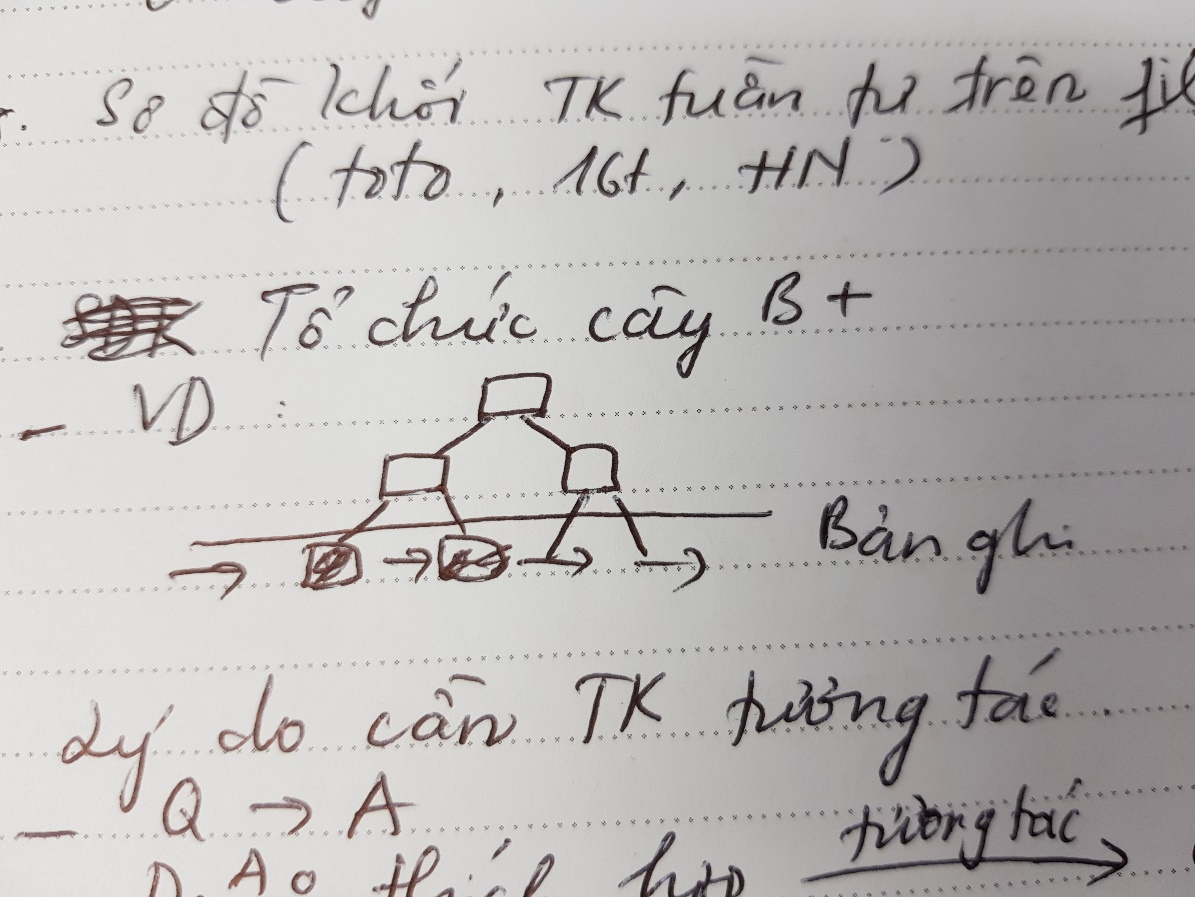 Sơ đồ khối TK tuần tự trên
(toto, 16t, HN)
Tổ chức cây B+
- VD :
Bản ghi
Lý do cần TK tương tác.
- Q → A
tương tác